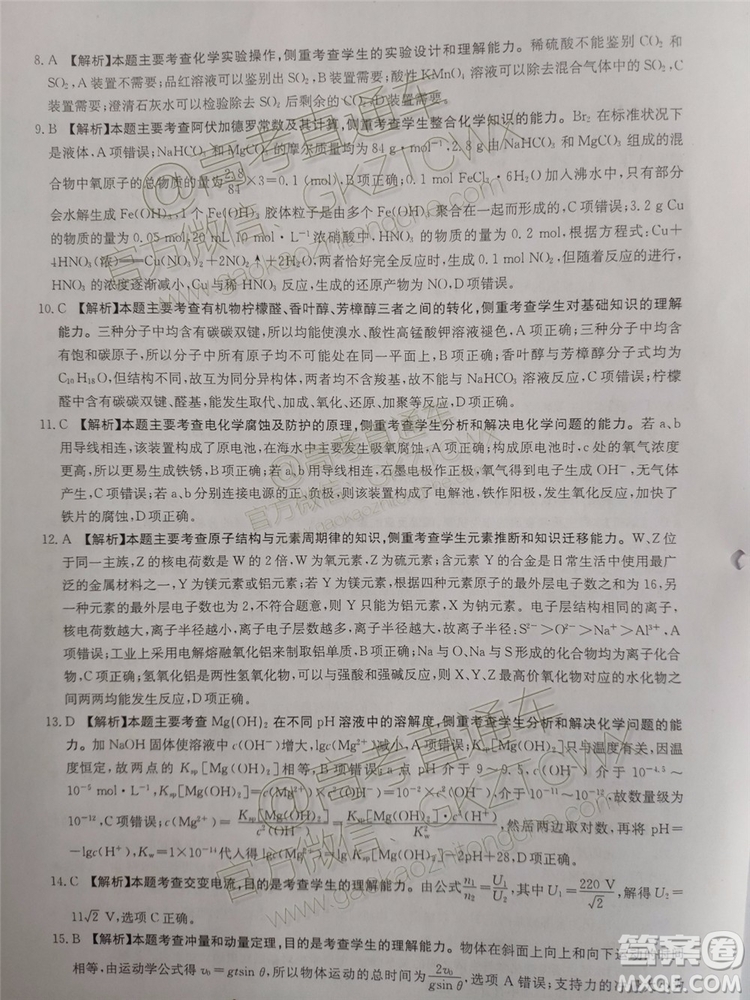 8. A 【解析】本题主要考查化学实验操作，侧重考查学生的实验设计和理解能力。稀硫酸不能鉴别 CO₂ 和
SO₂，A 装置不需要；品红溶液可以除去 SO₂，B 装置需要；酸性 KMnO₄ 溶液可以除去混合气体中的 SO₂，C
装置需要；澄清石灰水可以检验除去 SO₂ 后剩余的 CO₂，D 装置需要。
9. B 【解析】本题主要考查阿伏加德罗常数及其计算，侧重考查学生整合化学知识的能力。Br₂ 在标准状况下
是液体，A 项错误；NaHCO₃ 和 MgCO₃ 的摩尔质量均为 84 g·mol⁻¹，2.8 g 由 NaHCO₃ 和 MgCO₃ 组成的混
合物中氧原子的总物质的量为 2.8/84 ×3=0.1 (mol)，B 项正确；0.1 mol FeCl₃·6H₂O 加入沸水中，部分
会水解生成 Fe(OH)₃，1 个 Fe(OH)₃ 胶体粒子是由多个 Fe(OH)₃ 聚合在一起而形成的，C 项错误；3.2 g Cu
的物质的量为 0.05 mol，20 mL 10 mol·L⁻¹ 浓硝酸中，HNO₃ 的物质的量为 0.2 mol，根据方程式：Cu+
4HNO₃(浓)═Cu(NO₃)₂+2NO₂↑+2H₂O，若两者恰好完全反应时，生成 0.1 mol NO₂，但随着反应的进行，
HNO₃ 的浓度逐渐减小，Cu 与稀 HNO₃ 反应，生成的还原产物为 NO，D 项错误。
10. C 【解析】本题主要考查有机物柠檬醛、香叶醇、芳樟醇三者之间的转化，侧重考查学生对基础知识的理解
能力。三种分子中均含有碳碳双键，所以均能使溴水、酸性高锰酸钾溶液褪色，A 项正确；三种分子中均含
有饱和碳原子，所以分子中所有碳原子不可能处在同一平面上，B 项正确；香叶醇与芳樟醇分子式均为
C₁₀H₁₈O，故二者互为同分异构体，二者分子中均不含羧基，所以均不能与 NaHCO₃ 溶液反应，C 项错误；柠檬
醛中含有碳碳双键、醛基，所以能发生加成、氧化、还原、加聚等反应，D 项正确。
11. C 【解析】本题主要考查电化学腐蚀及防护的原理，侧重考查学生分析和解决电化学问题的能力。若 a、b
用导线相连，该装置构成了原电池，在海水中主要发生吸氧腐蚀，A 项正确；实际生活中，c 处的氧气浓度
更高，所以更易生成铁锈，B 项正确；若 a、b 用导线相连，石墨电极作正极，氧气得到电子生成 OH⁻，无气体
产生，C 项错误；若 a、b 分别连接电源的正、负极，则该装置构成了电解池，铁作阳极，发生氧化反应，加快了
铁片的腐蚀，D 项正确。
12. A 【解析】本题主要考查原子结构与元素周期律的知识，侧重考查学生元素推断和知识迁移能力。W、Z 位
于同一主族，Z 的核电荷数是 W 的 2 倍，W 为氧元素，Z 为硫元素；含金属元素 Y 的合金是日常生活中使用最广
泛的金属材料之一，则 Y 为镁元素或铝元素；若 Y 为镁元素，根据四种元素原子的最外层电子数之和为 16，另
一种元素的最外层电子数为 2，不符合题意，则 Y 只能为铝元素，X 为钠元素。电子层结构相同的离子，
核电荷数越大，离子半径越小；电子层数越大，离子半径越大，所以离子半径：S²⁻>O²⁻>Na⁺>Al³⁺，A
项错误；工业上采用电解熔融氧化铝的方法冶炼铝，B 项正确；O、Na 与 S 形成的化合物溶液可能显中性，C
项正确；氢氧化铝是两性氢氧化物，可以与强酸和强碱反应，则 X、Y、Z 最高价氧化物对应的水化物之
间两两均能发生反应，D 项正确。
13. D 【解析】本题主要考查 Mg(OH)₂ 在不同 pH 溶液中的溶解度，侧重考查学生分析和解决化学问题的能
力。加 NaOH 固体使溶液中 c(OH⁻)增大，lgc(Mg²⁺)减小，A 项错误；Kₛₚ 只与温度有关，因温
度恒定，故 T 点的 Kₛₚ[Mg(OH)₂]相等，B 项错误；a 点 pH 介于 9～9.5，c(OH⁻)介于 10⁻⁴·⁵～
10⁻⁵ mol·L⁻¹，Kₛₚ[Mg(OH)₂]=c(Mg²⁺)×c²(OH⁻)介于 10⁻¹¹～10⁻¹²，故数量级为
10⁻¹²，C 项正确；c(Mg²⁺)=Kₛₚ[Mg(OH)₂]/c²(OH⁻)=c²(H⁺)×Kₛₚ[Mg(OH)₂]/K_w²，然后两边取对数，再将 pH=
−lgc(H⁺)，K_w=1×10⁻¹⁴代入得 lgc(Mg²⁺)=lgKₛₚ[Mg(OH)₂]−2pH+28，D 项正确。
14. C 【解析】本题考查交变电流，目的是考查学生的理解能力。由公式 n₁/n₂=U₁/U₂，其中 U₁=220 V/√2，解得 U₂=
11√2 V，选项 C 正确。
15. B 【解析】本题考查冲量和动量定理，目的是考查学生的理解能力。物体在斜面上向上和向下运动的时间
相等，由运动学公式得 v₀=gtsin θ，所以物体运动的总时间为 2v₀/gsin θ，选项 A 错误；支持力的
@高考直通车
官方微信：GKZTCWX
www.gaokaozhitongche.com
答案卷
MXQE.COM